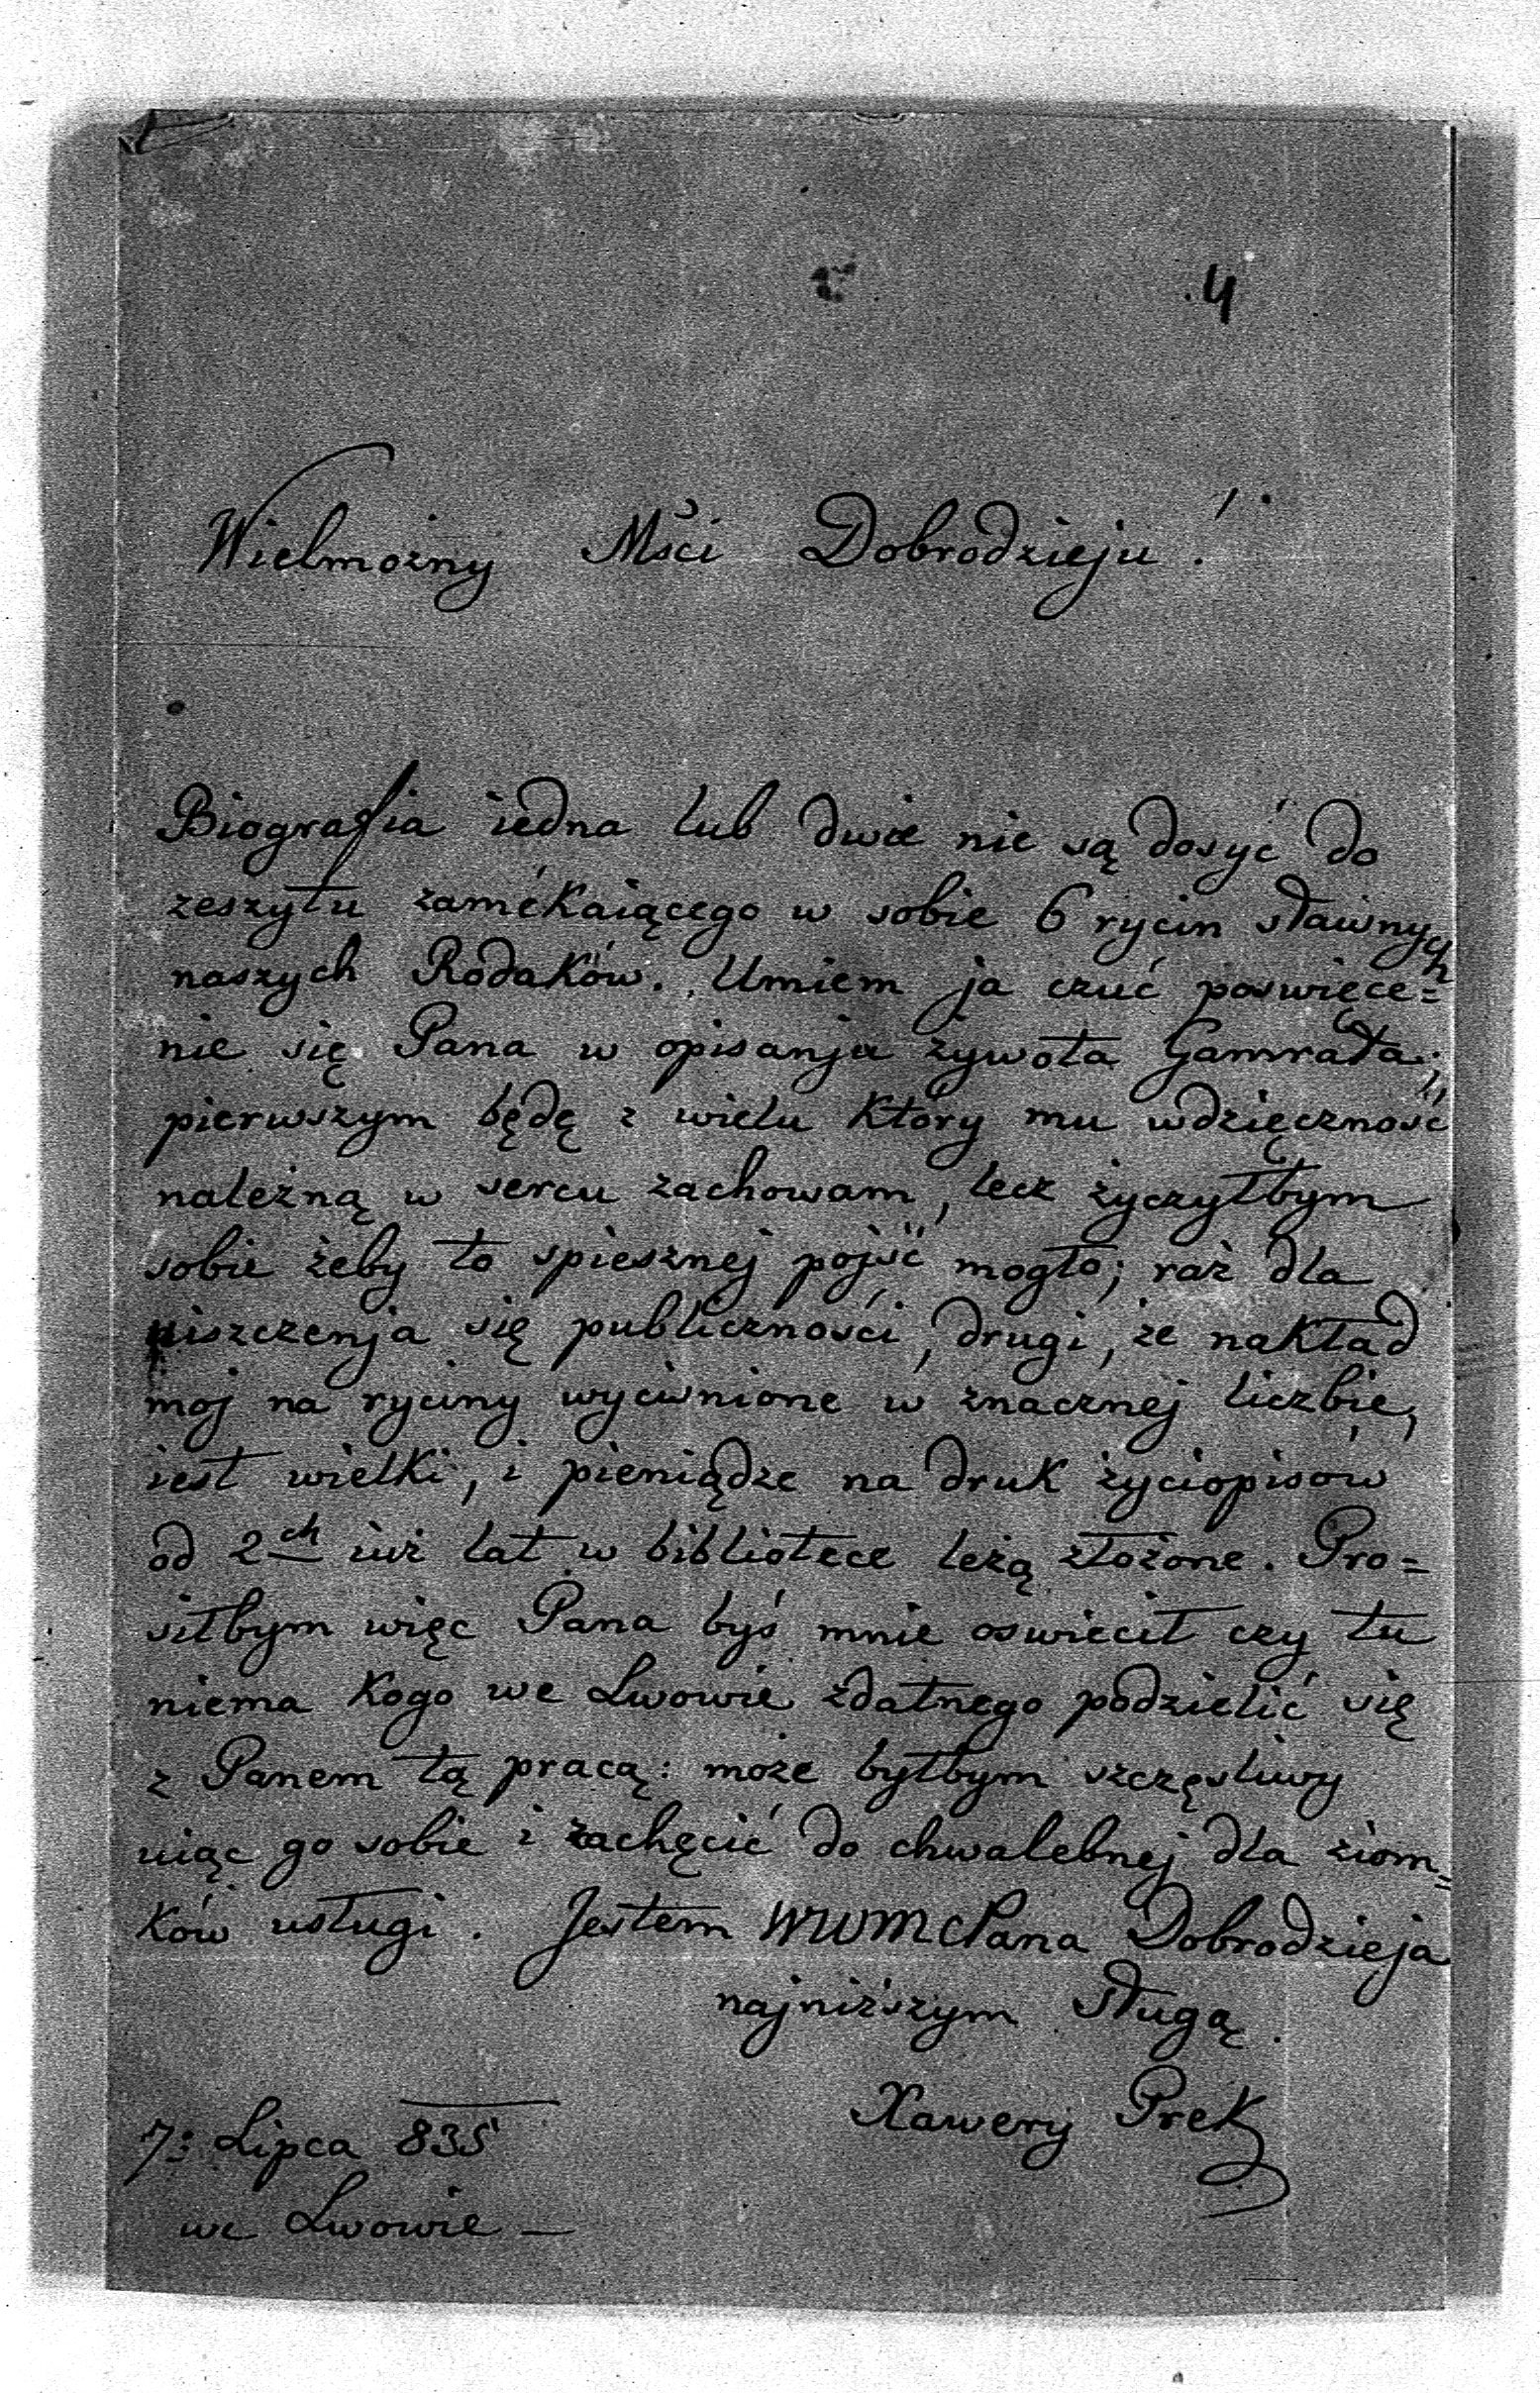 4
Wielmożny Mści Dobrodzieju!
Biografia iedna lub dwie nie są dosyć do
zeszytu zamékaiącego w sobie 6 rycin sławnych
naszych Rodaków. Umiem ja czuć poswięce=
nie się Pana w opisanju żywota Gamrata;
pierwszym będę z wielu który mu wdzięczność
należną w sercu zachowam, lecz życzyłbym
sobie żeby to spiesznej pojść mogło; raz dla
uiszczenja się publiczności, drugi, że nakład
moj na ryciny wyciwnione w znacznej liczbie,
iest wielki, i pieniądze na druk życiopisów
od 2ch iuż lat w bibliotece leżą złożone. Pro=
siłbym więc Pana byś mnie oswiecił czy tu
niema kogo we Lwowie zdatnego podzielić się
z Panem tą pracą: może byłbym szczęsliwy
uiąc go sobie i zachęcić do chwalebnej dla ziom=
ków usługi. Jestem WWMCPana Dobrodzieja
najniższym sługą.
Xawery Prek
7: Lipca 835
we Lwowie —